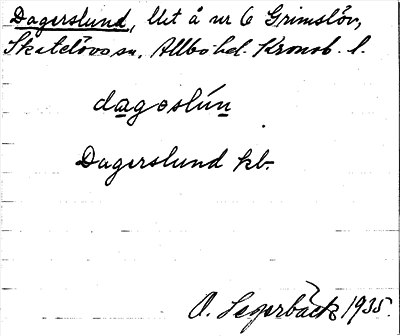 Dagerslund, llit å nr 6 Grimslöv,
Skatelövs sn. Allbo hd. Kronob. l.
dagoslún
Dagerslund kb.
O. Segerbäck 1935.